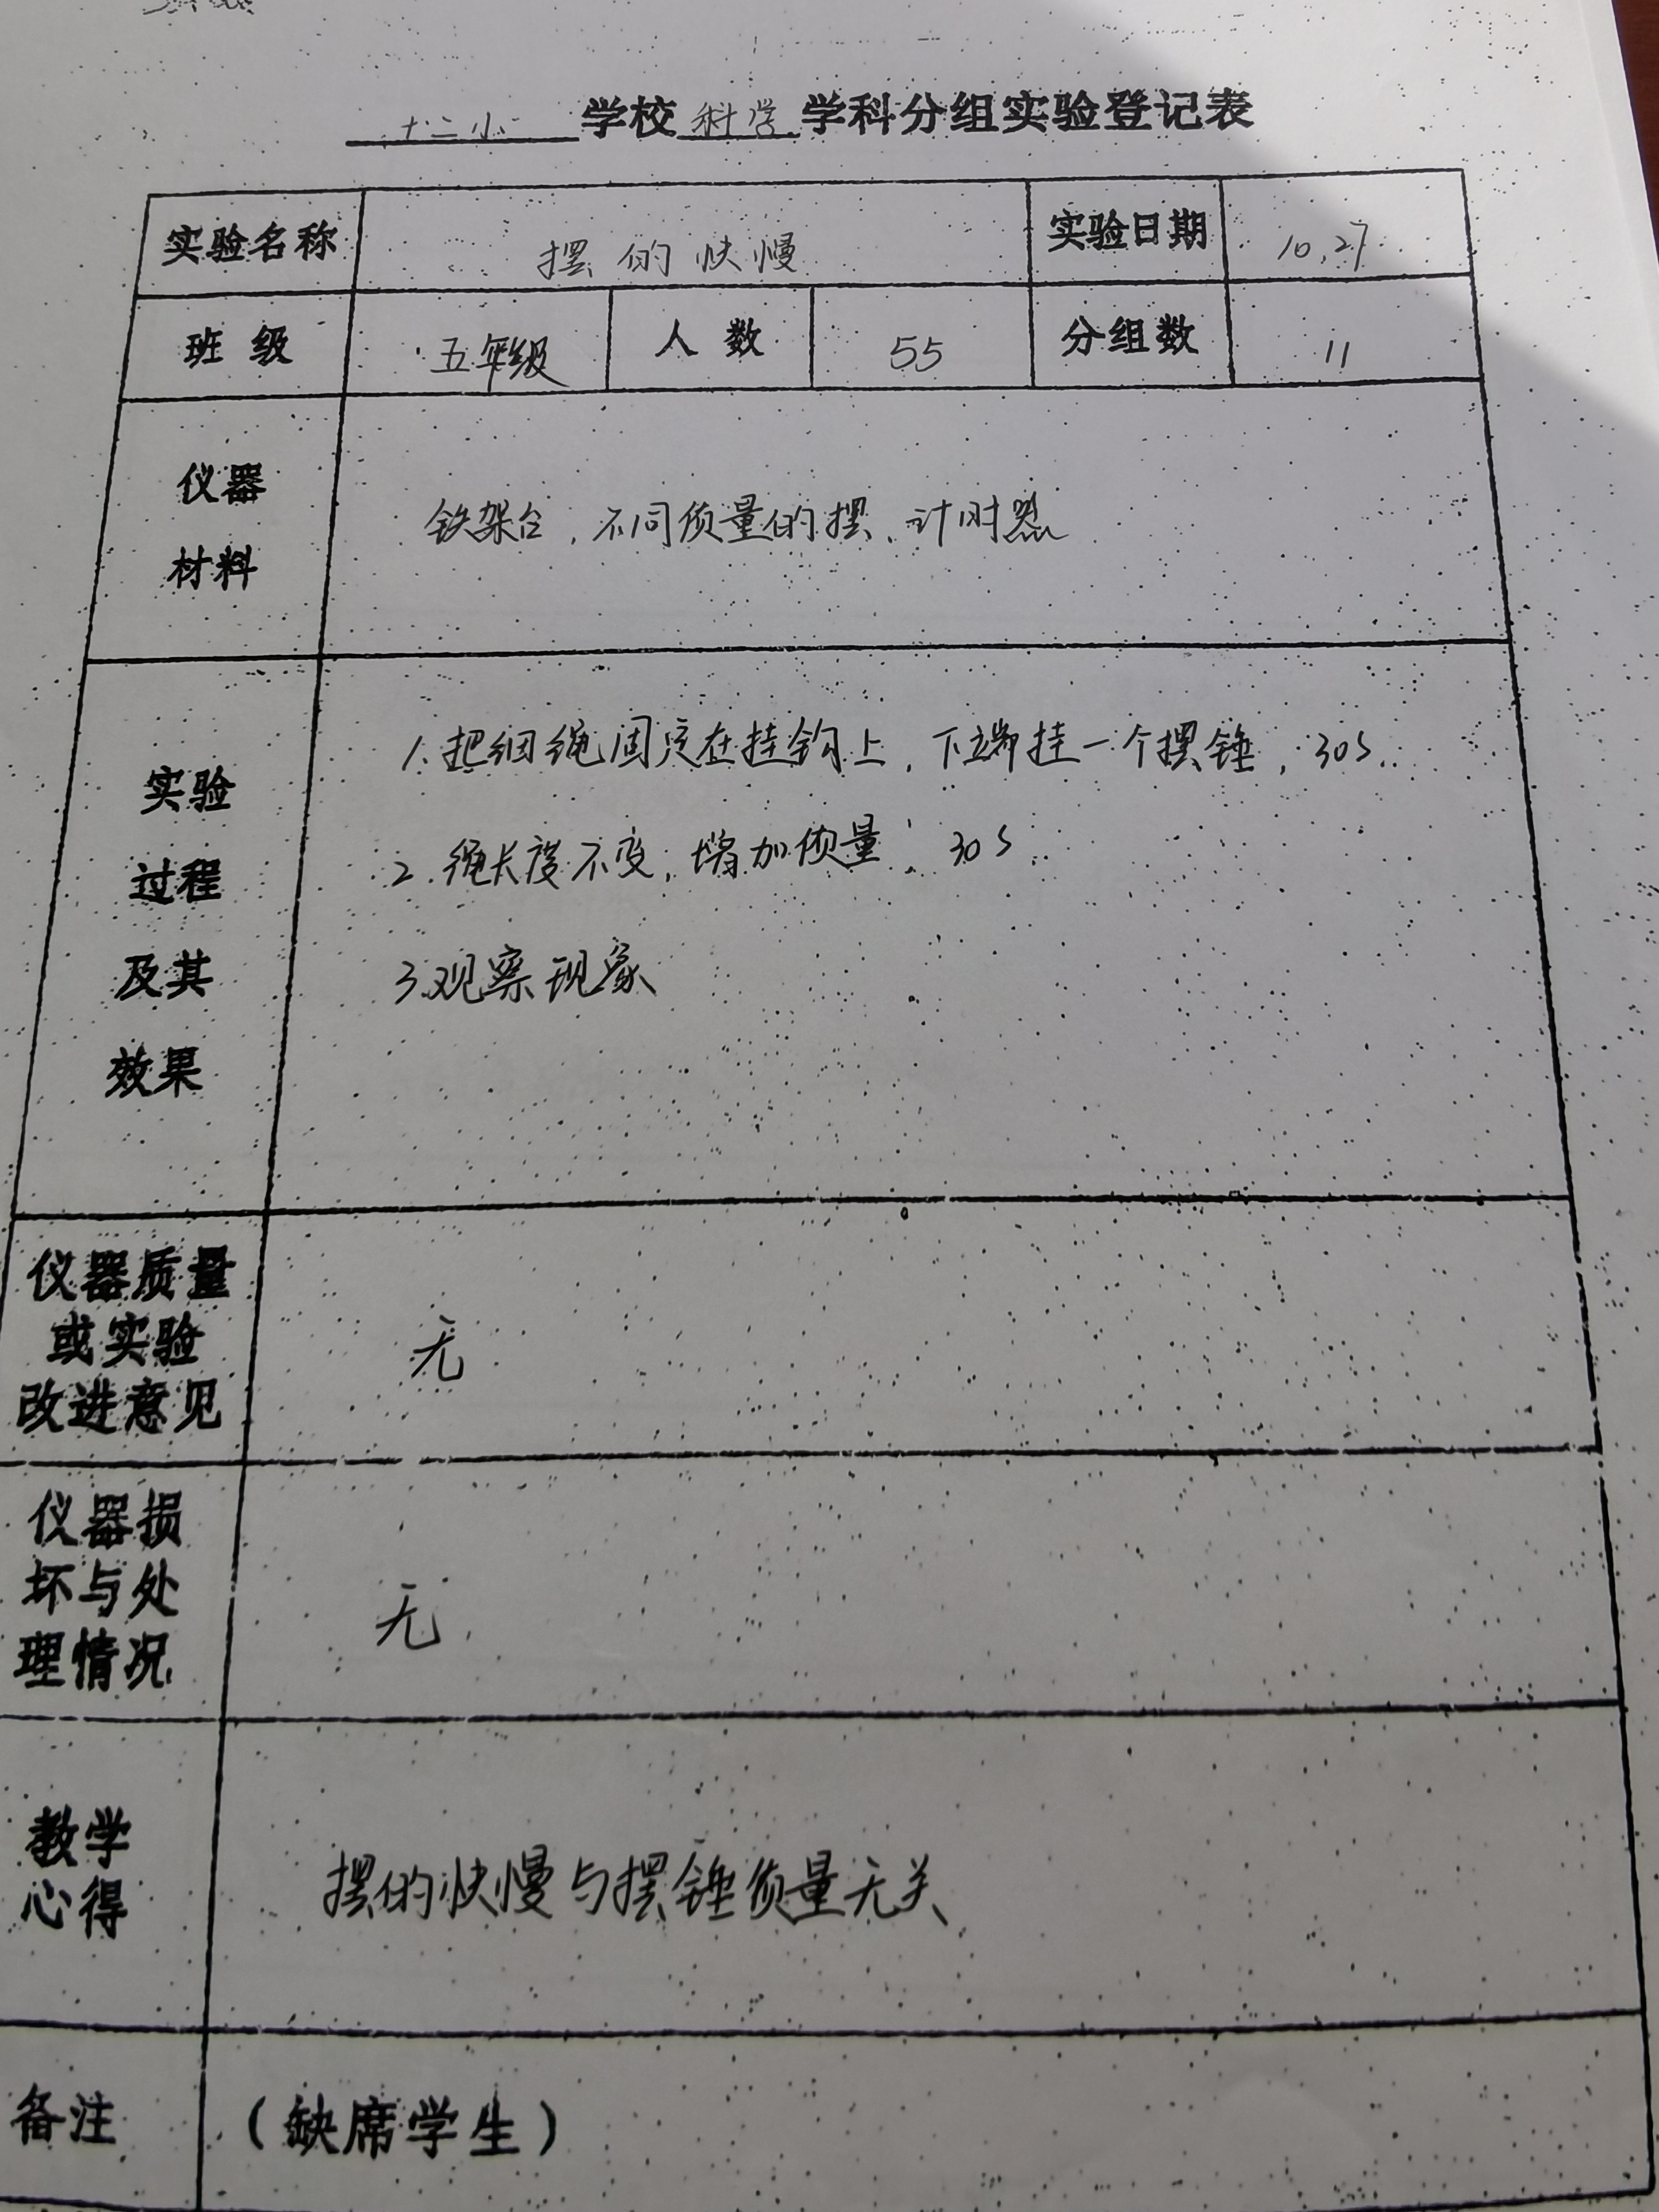 十二小学校科学学科分组实验登记表
实验名称 摆的快慢 实验日期 10.27
班级 五年级 人数 55 分组数 11
仪器
材料
铁架台、不同质量的摆、计时器
实验
过程
及其
效果
1.把细绳固定在挂钩上,下端挂一个摆锤,30s.
2.绳长度不变,增加质量,30s
3.观察现象
仪器质量
或实验
改进意见
无
仪器损
坏与处
理情况
无
教学
心得
摆的快慢与摆锤质量无关
备注 (缺席学生)